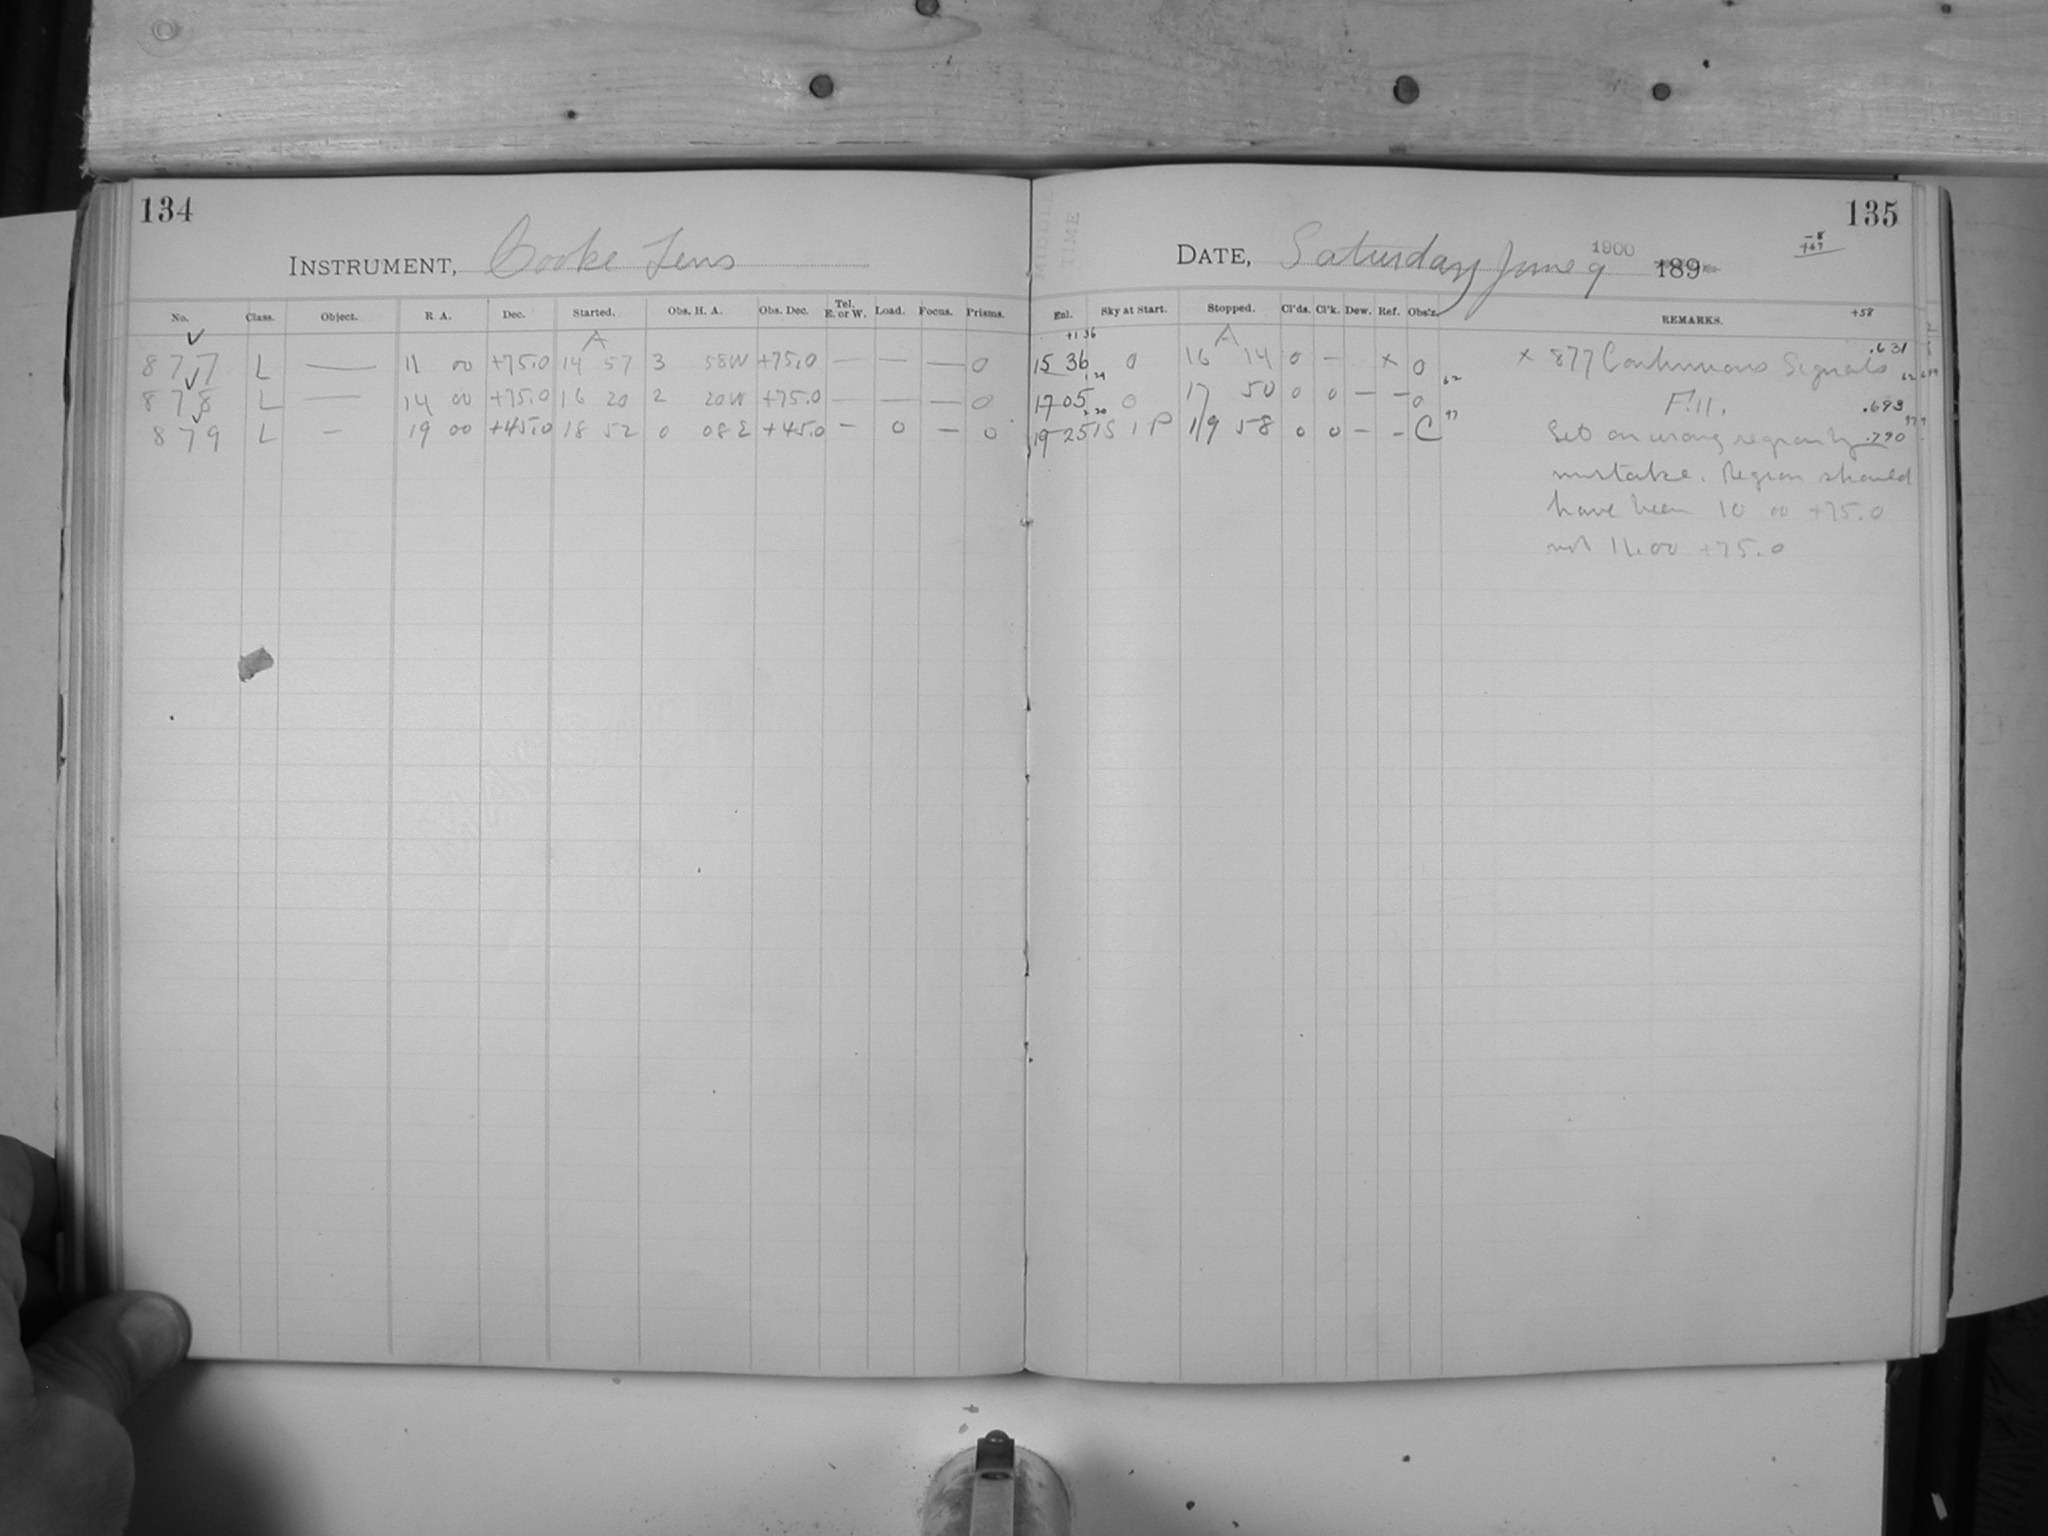 134
INSTRUMENT, Cooke Lens
No. Class. Object. R A. Dec. Started. Obs. H. A. Obs. Dec. Tel. E. or W. Load. Focus. Prisms.
A
877 L — 11 00 +75.0 14 57 3 58W +75.0 — — — 0
878 L — 14 00 +75.0 16 20 2 20W +75.0 — — — 0
879 L — 19 00 +45.0 18 52 0 08E +45.0 — 0 — 0
MIDDLE
TIME
135
DATE, Saturday June 9 1900 189
-8
+67
Enl. Sky at Start. Stopped. Cl'ds. Cl'k. Dew. Ref. Obs'r. REMARKS. +58
+1 36 A
15 36 0 16 14 0 – x 0 x 877 Continuous Signals .631
1 29 62
17 05 0 17 50 0 0 — — 0 F.11. .693
2 20 97
19 25 1S 1P 19 58 0 0 – – C Set on wrong region by .790
mistake. Region should
have been 10 00 +75.0
not 11.00 +75.0